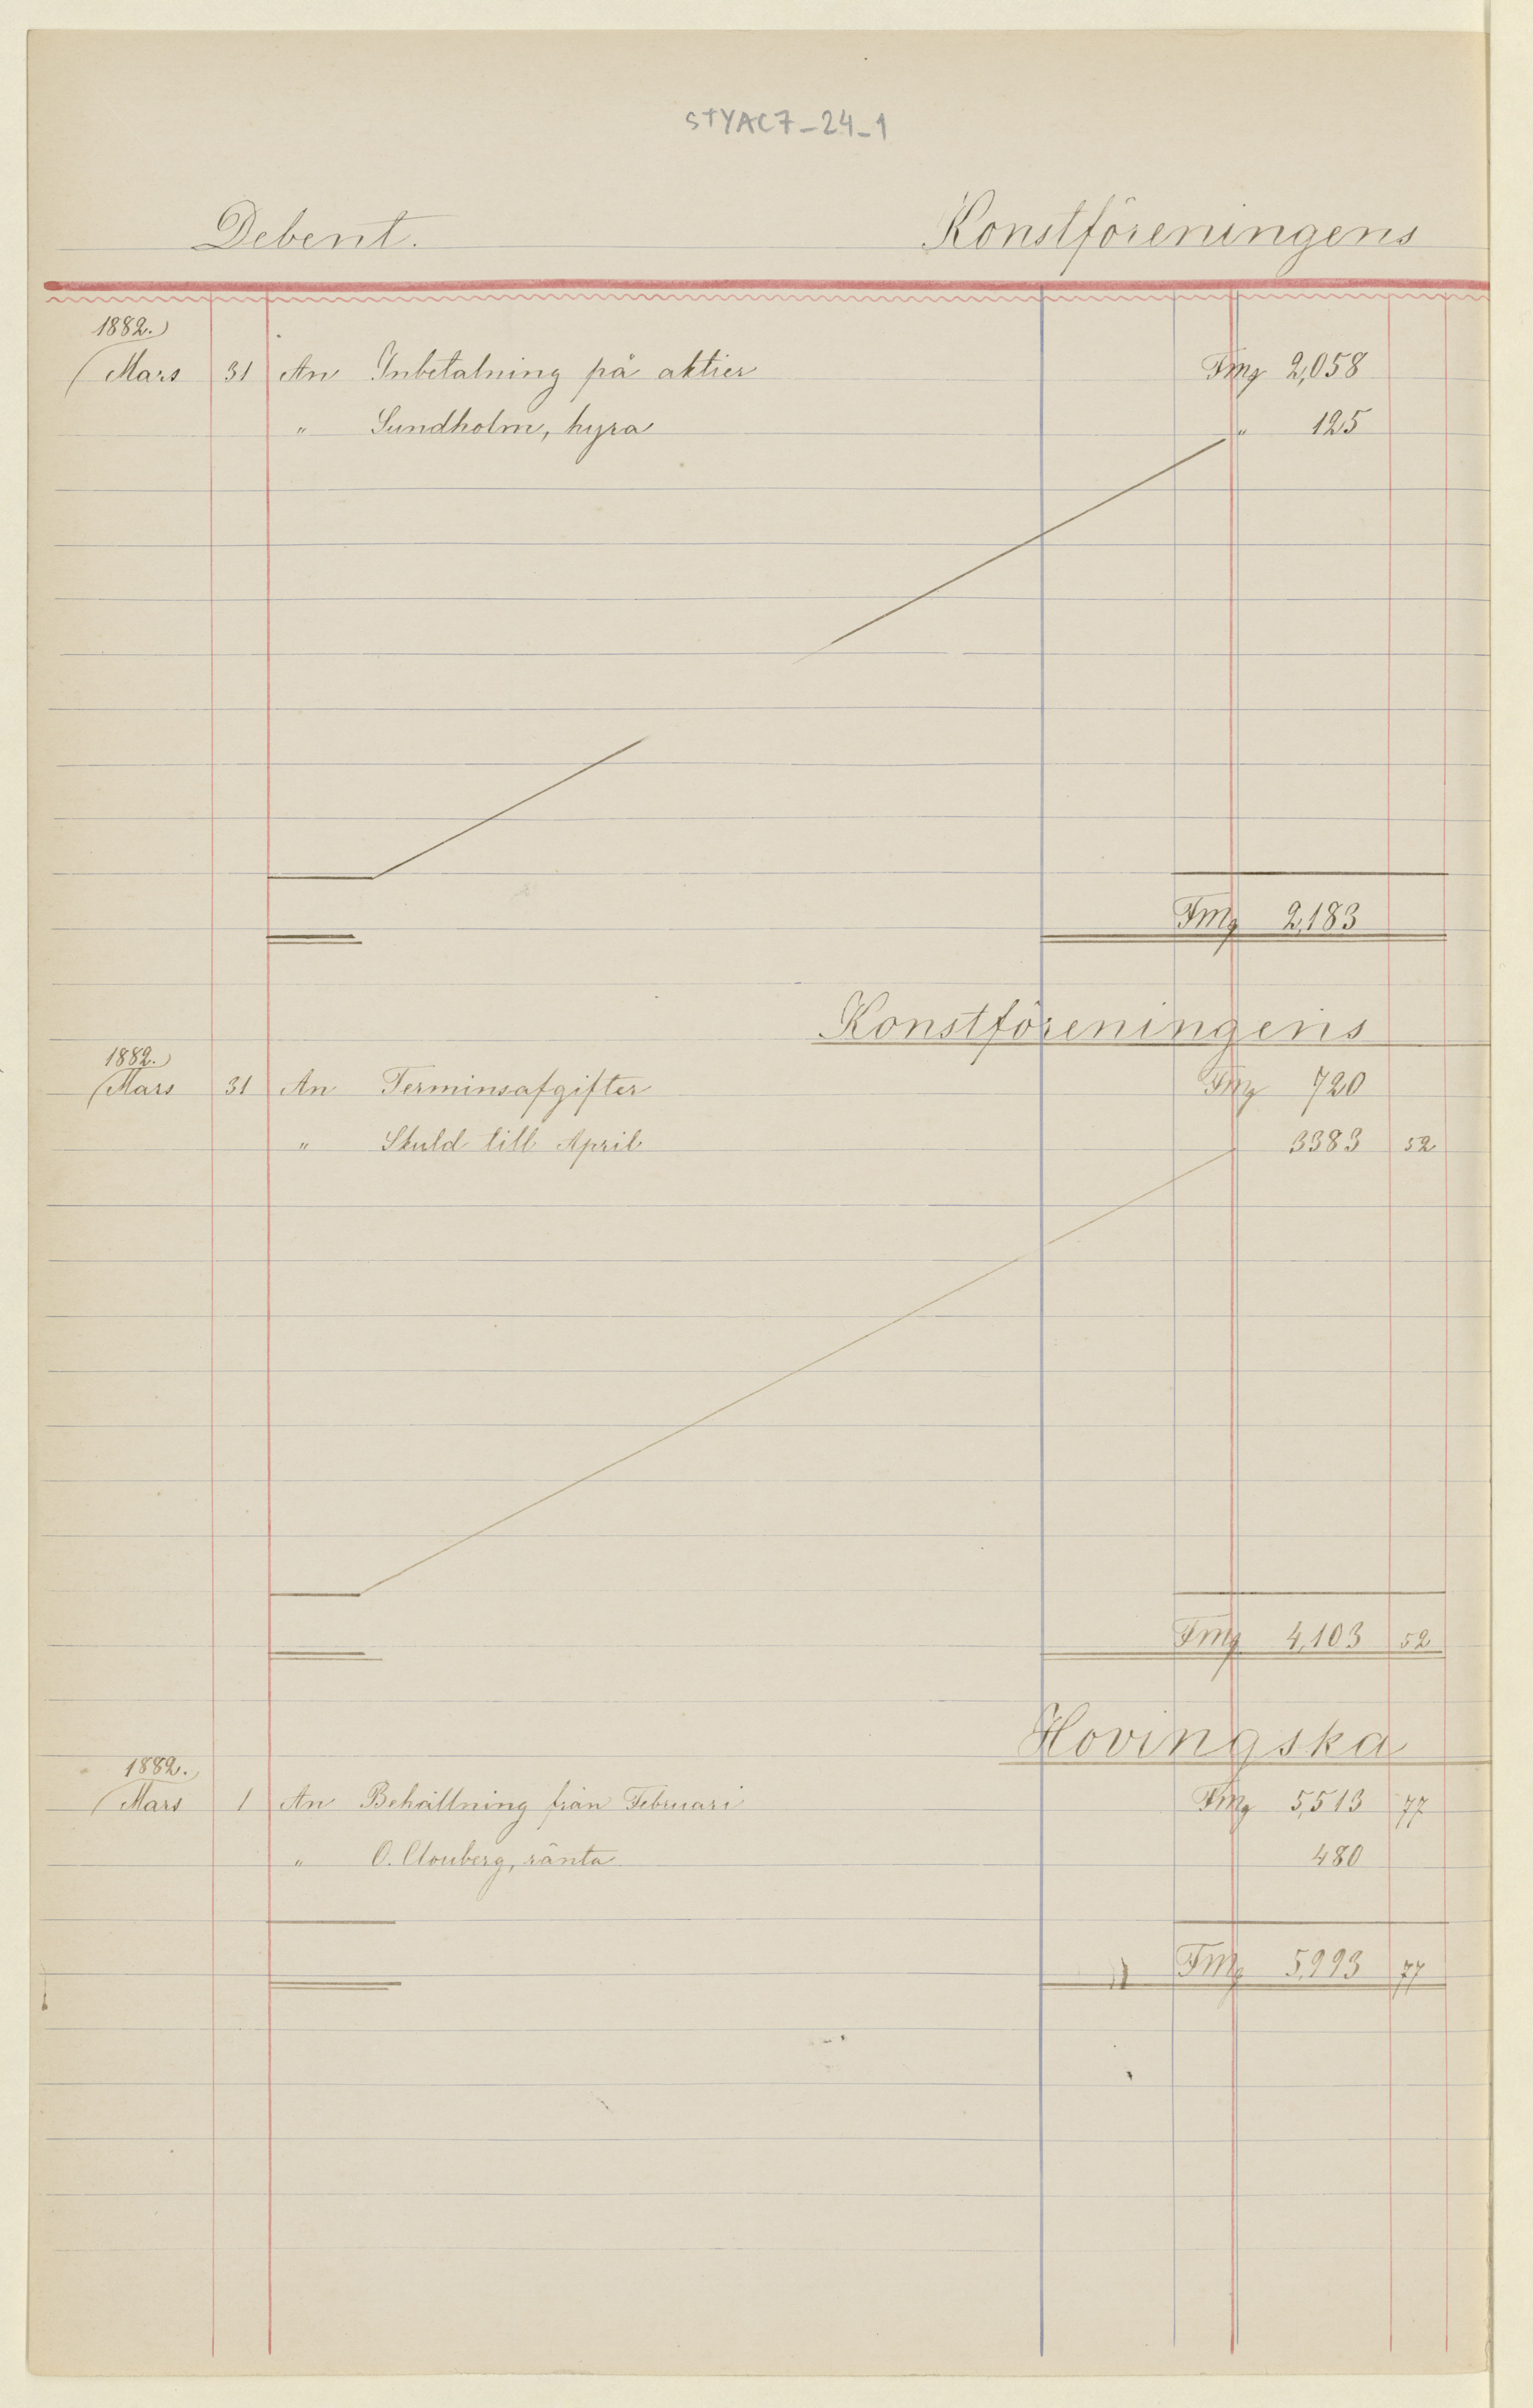 STYAC7-24-1
Debent. Konstföreningens
1882.
Mars 31 An Inbetalning på aktier Fmg 2,058
" Sundholm, hyra " 125
Fmg 2,183
Konstföreningens
1882.
Mars 31 An Terminsafgifter Fmg 720
" Skuld till April 3383 52
Fmg 4,103 52
Hovingska
1882.
Mars 1 An Behållning från Februari Fmg 5,513 77
" O. Clouberg, ränta 480
Fmg 5,993 77